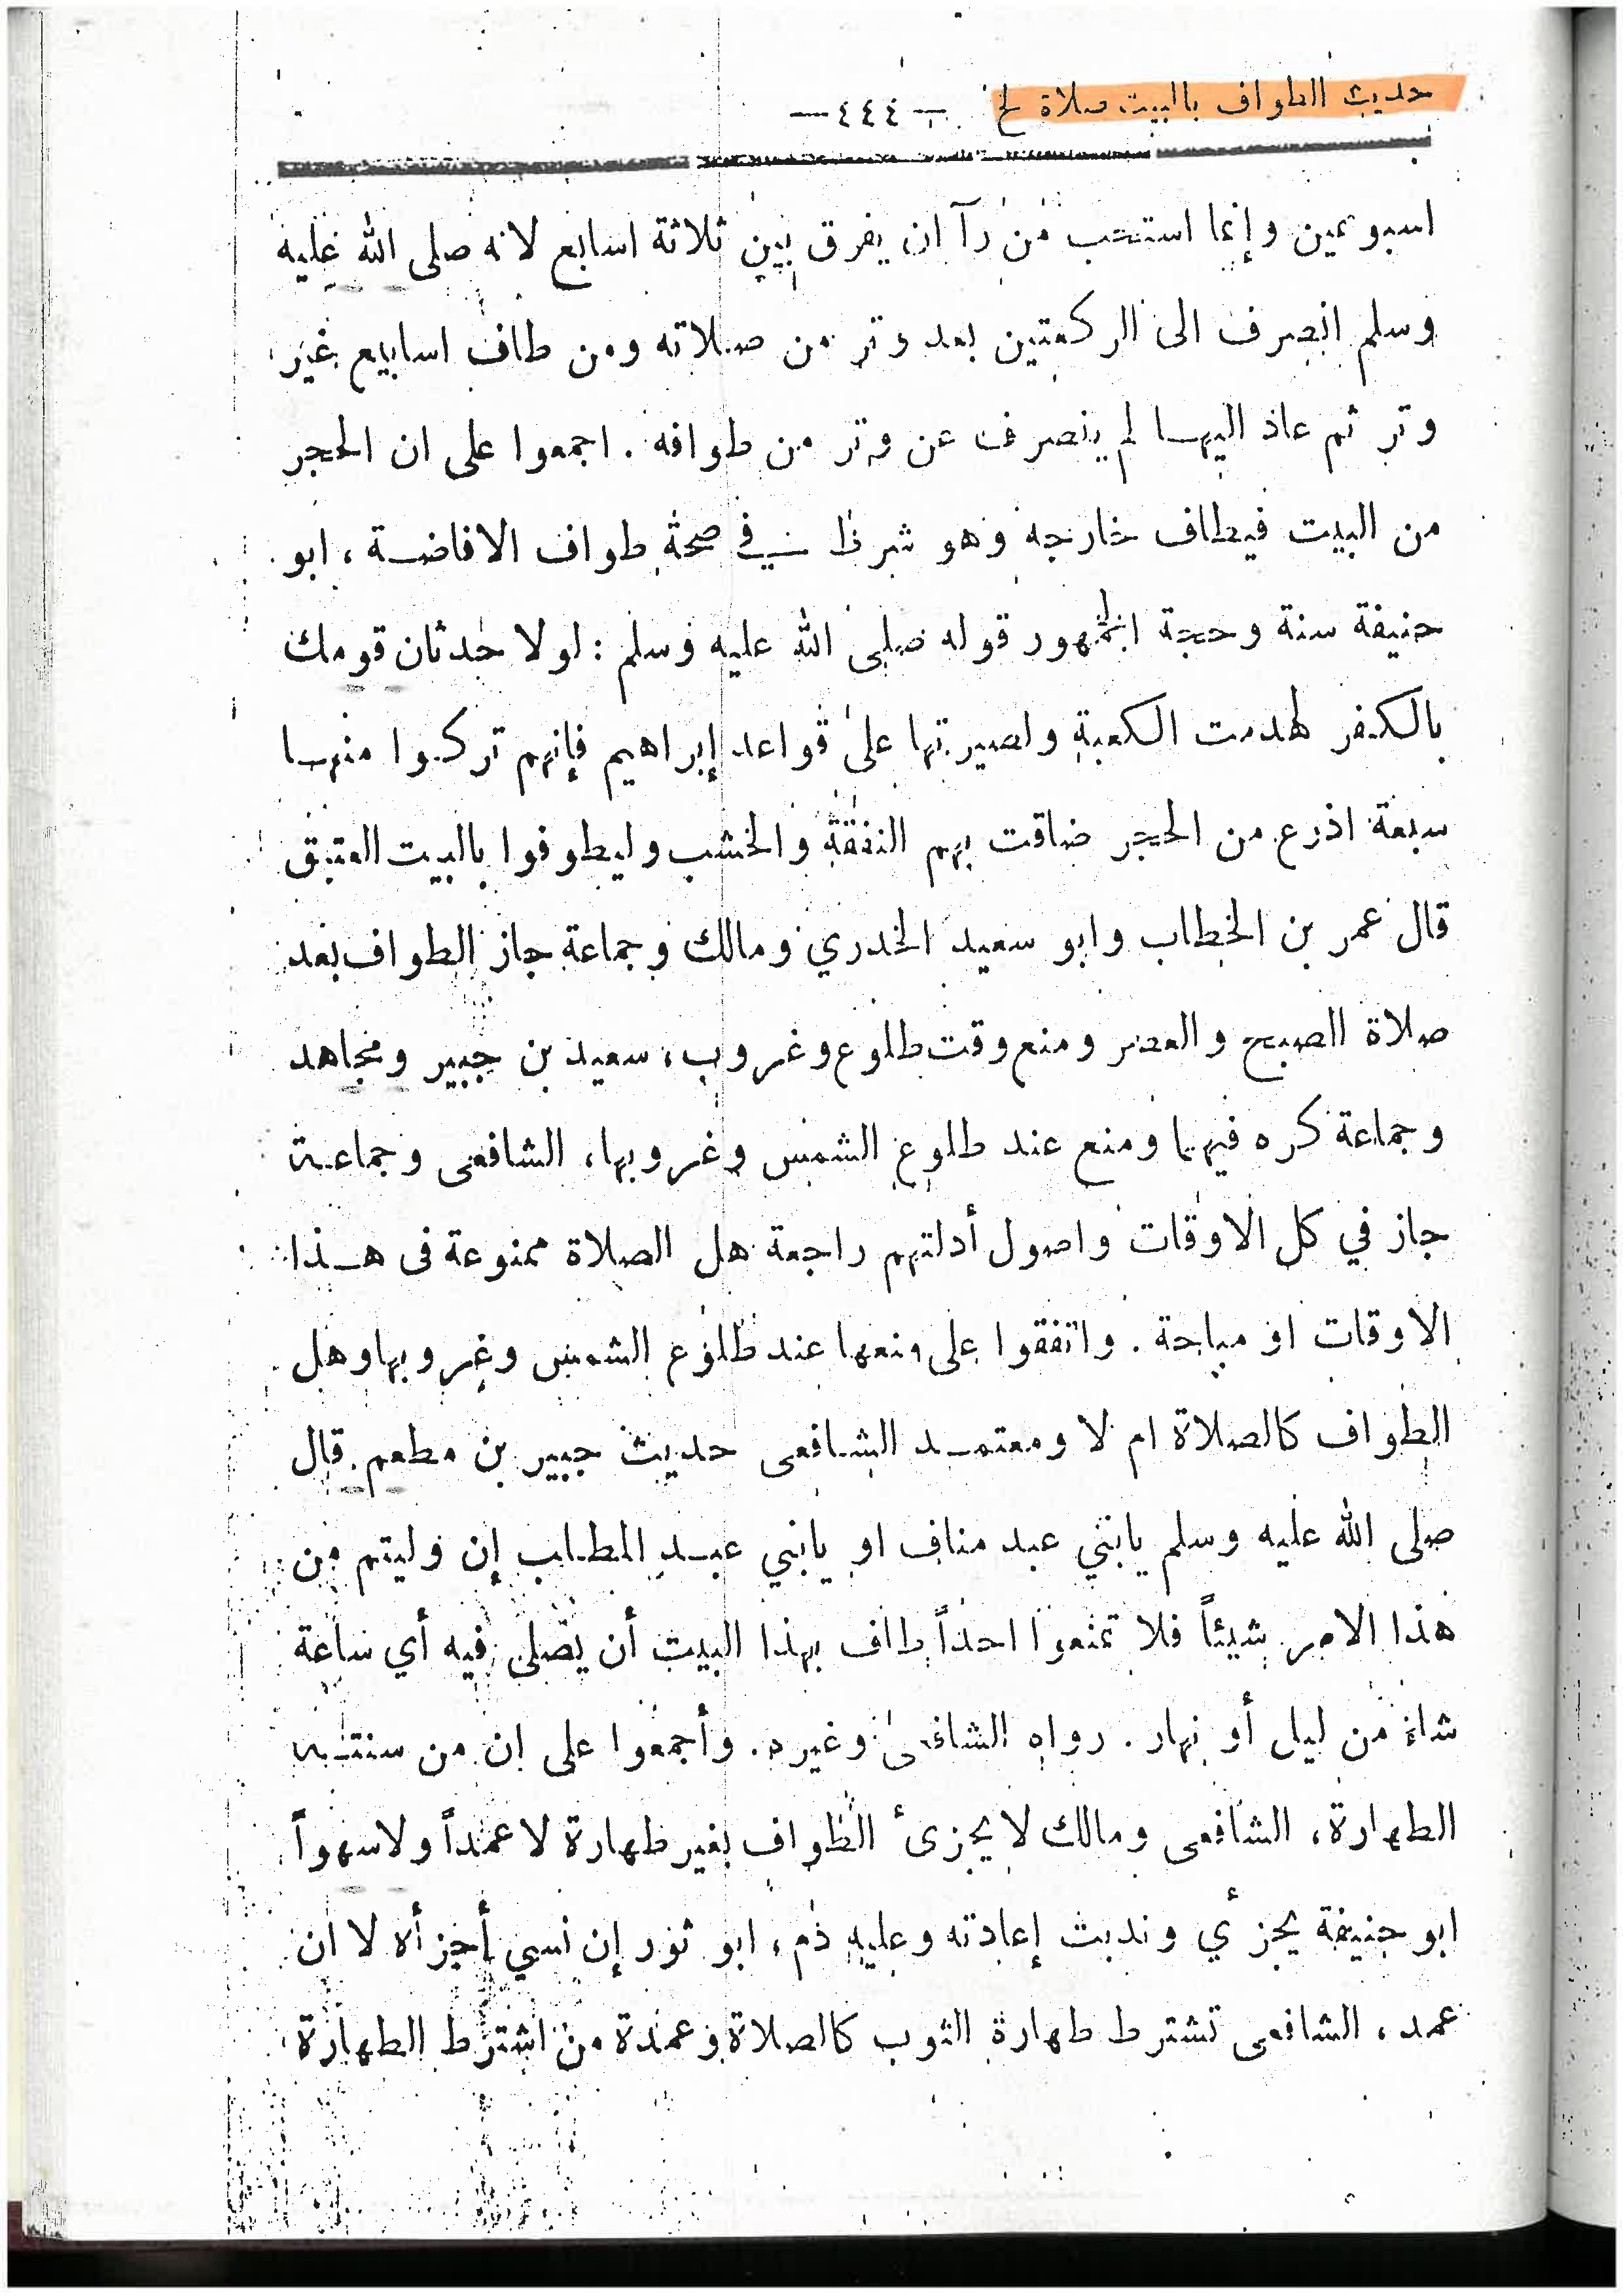 حديث الطواف بالبيت صلاة لخ — ٤٤٤ —
اسبوعين وإنما استحب من رآ ان يفرق بين ثلاثة اسابع لانه صلى الله عليه
وسلم انصرف الى الركعتين بعد وتر من صلاته ومن طاف اسابيع غير
وتر ثم عاد اليها لم ينصرف عن وتر من طوافه . اجمعوا على ان الحجر
من البيت فيطاف خارجه وهو شرط في صحة طواف الافاضة ، ابو
حنيفة سنة وحجة الجمهور قوله صلى الله عليه وسلم : لولا حدثان قومك
بالكفر لهدمت الكعبة ولصيرتها على قواعد إبراهيم فإنهم تركوا منها
سبعة اذرع من الحجر ضاقت بهم النفقة والخشب وليطوفوا بالبيت العتيق
قال عمر بن الخطاب وابو سعيد الخدري ومالك وجماعة جاز الطواف بعد
صلاة الصبح والعصر ومنع وقت طلوع وغروب ، سعيد بن جبير ومجاهد
وجماعة كره فيهما ومنع عند طلوع الشمس وغروبها ، الشافعى وجماعة
جاز في كل الاوقات واصول أدلتهم راجعة هل الصلاة ممنوعة فى هـذا
الاوقات او مباحة . واتفقوا على منعها عند طلوع الشمس وغروبها وهل
الطواف كالصلاة ام لا ومعتمد الشافعى حديث جبير بن مطعم قال
صلى الله عليه وسلم يابني عبد مناف او يابني عبد المطلب إن وليتم من
هذا الامر شيئاً فلا تمنعوا احداً طاف بهذا البيت أن يصلى فيه أي ساعة
شاء من ليل أو نهار . رواه الشافعى وغيره . وأجمعوا على ان من سنته
الطهارة ، الشافعى ومالك لا يجزىء الطواف بغير طهارة لا عمداً ولا سهواً
ابو حنيفة يجزأي وندبت إعادته وعليه دم ، ابو ثور إن نسي أجزأه لا ان
عمد ، الشافعى تشترط طهارة الثوب كالصلاة وعمدة من اشترط الطهارة